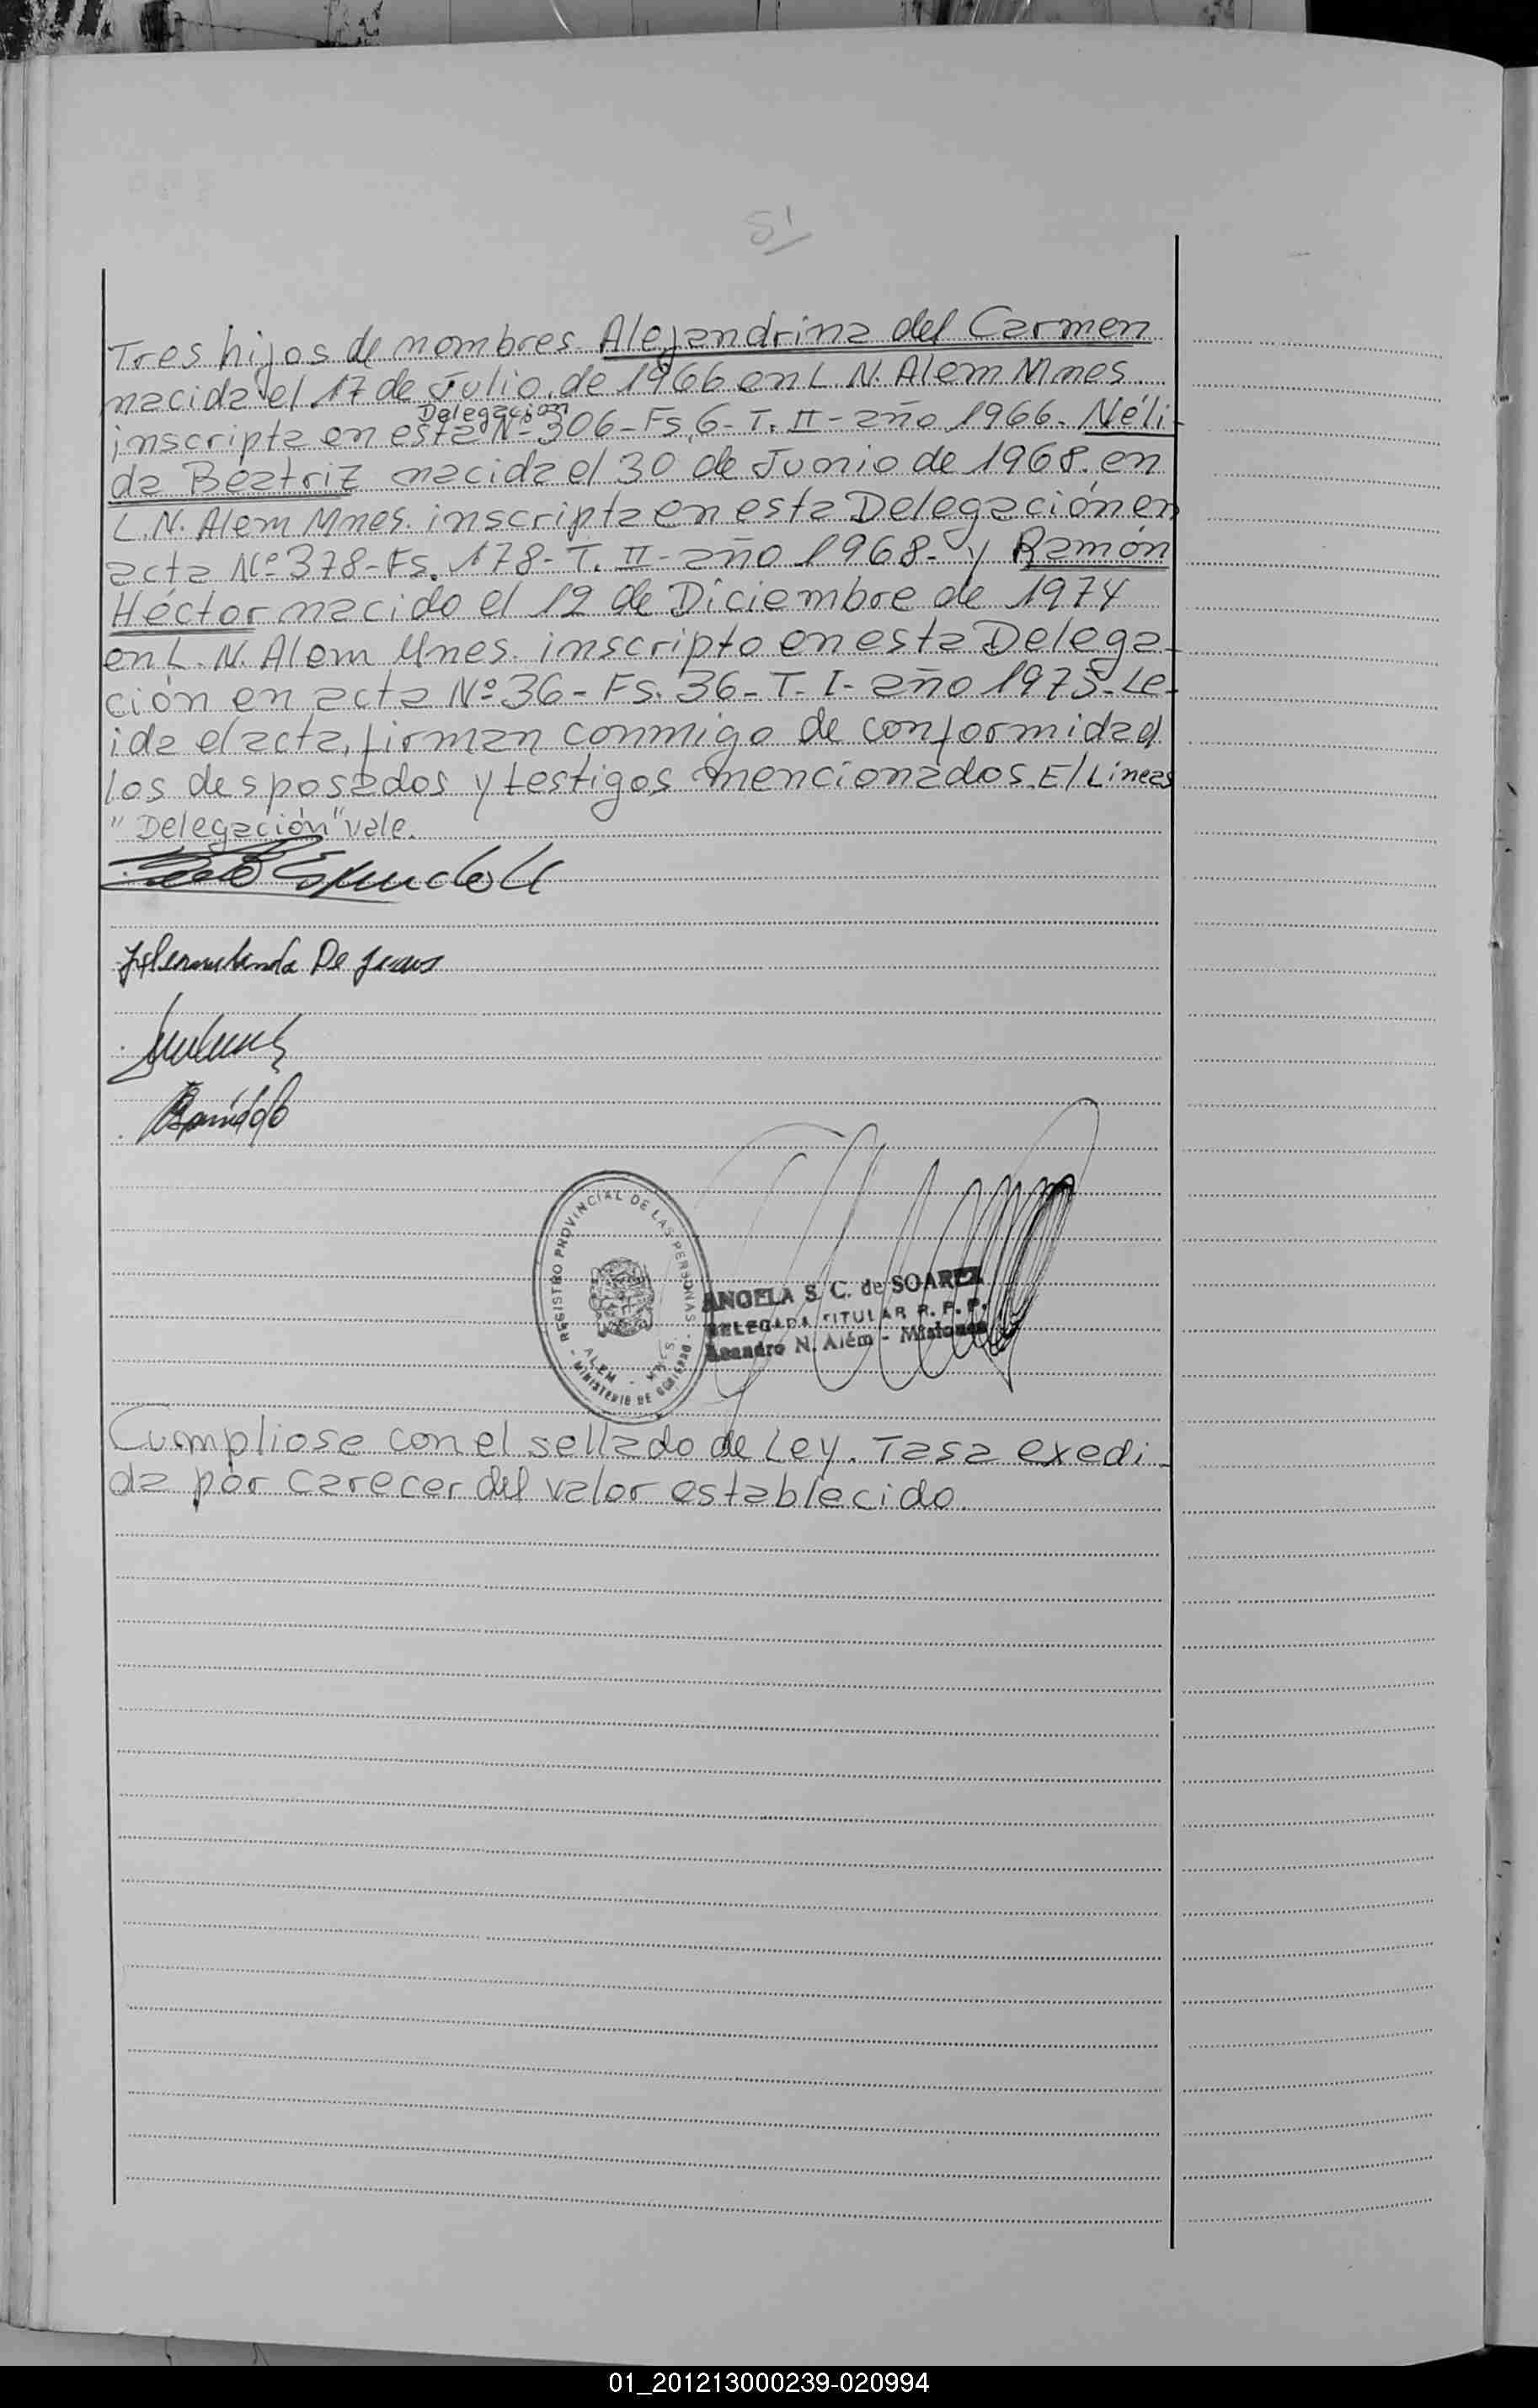 51
Tres hijos de nombres Alejandrina del Carmen
nacida el 17 de Julio de 1966 en L. N. Alem Mnes.
Delegación
inscripta en esta Nº 306 - Fs. 6 - T. II - año 1966. Néli-
da Beatriz nacida el 30 de Junio de 1968 en
L. N. Alem Mnes. inscripta en esta Delegación en
acta Nº 378 - Fs. 178 - T. II - año 1968 - y Ramón
Héctor nacido el 12 de Diciembre de 1974
en L. N. Alem Mnes. inscripto en esta Delega-
ción en acta Nº 36 - Fs. 36 - T. I - año 1975 - Le-
ida el acta, firman conmigo de conformidad
los desposados y testigos mencionados. E/Lineas
"Delegación" vale.
De Jesus
REGISTRO PROVINCIAL DE LAS PERSONAS
ALEM - MNES.
MINISTERIO DE GOBIERNO
ANGELA S. C. de SOAREZ
DELEGADA TITULAR R. P. P.
Leandro N. Além - Misiones
Cumpliose con el sellado de Ley. Tasa exedi-
da por carecer del valor establecido.
01_201213000239-020994